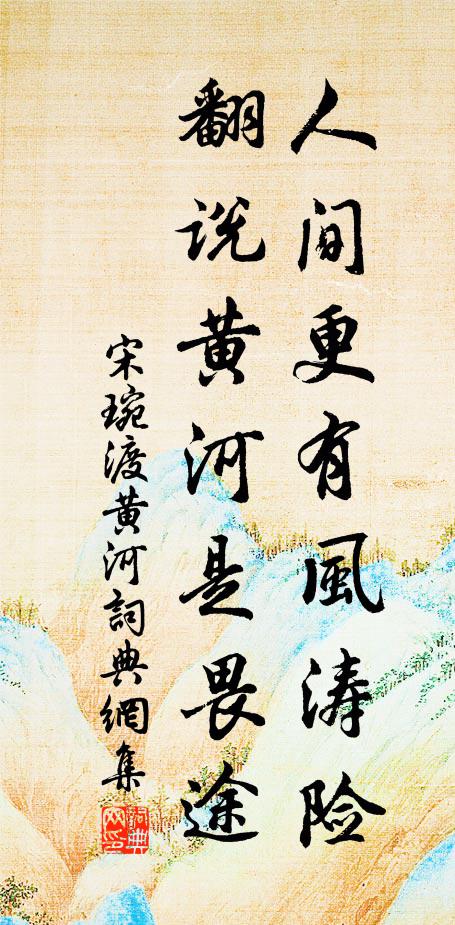 人间更有風涛险
翻说黄河是畏途
宋琬渡黄河詞典網集
詞典